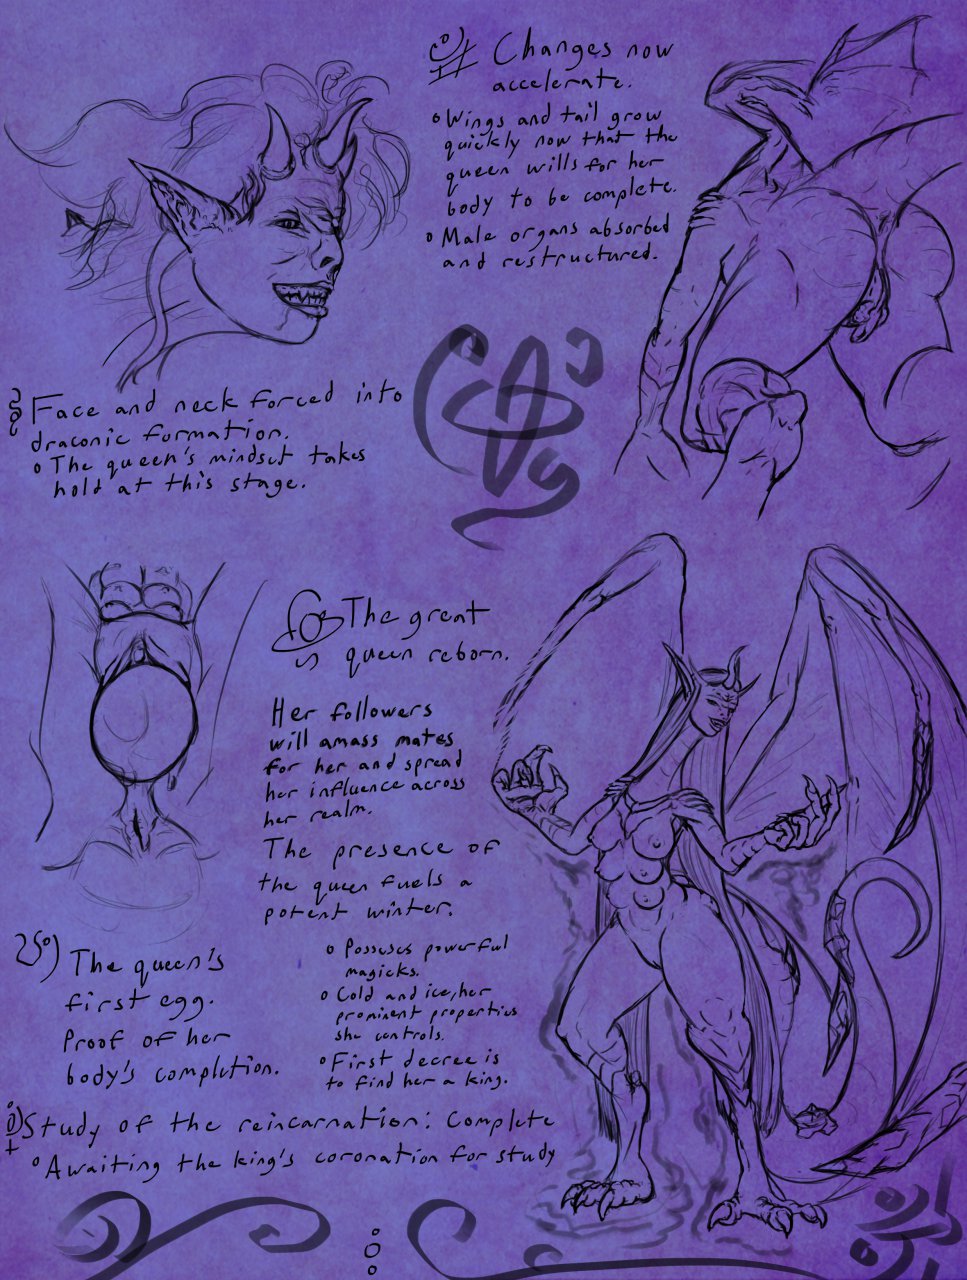 Changes now
accelerate.
Wings and tail grow
quickly now that the
queen wills for her
body to be complete.
Male organs absorbed
and restructured.
Face and neck forced into
draconic formation.
The queen's mindset takes
hold at this stage.
The great
queen reborn.
Her followers
will amass mates
for her and spread
her influence across
her realm.
The presence of
the queen fuels a
potent winter.
Posseses powerful
magicks.
Cold and ice, her
prominent properties
she controls.
First decree is
to find her a king.
The queen's
first egg.
Proof of her
body's completion.
Study of the reincarnation: Complete
Awaiting the king's coronation for study